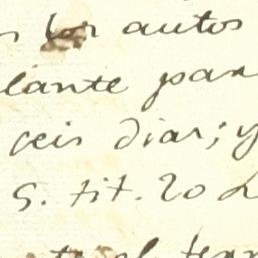 s los autos
lante para
seis dias; y
S. tit. 20 L